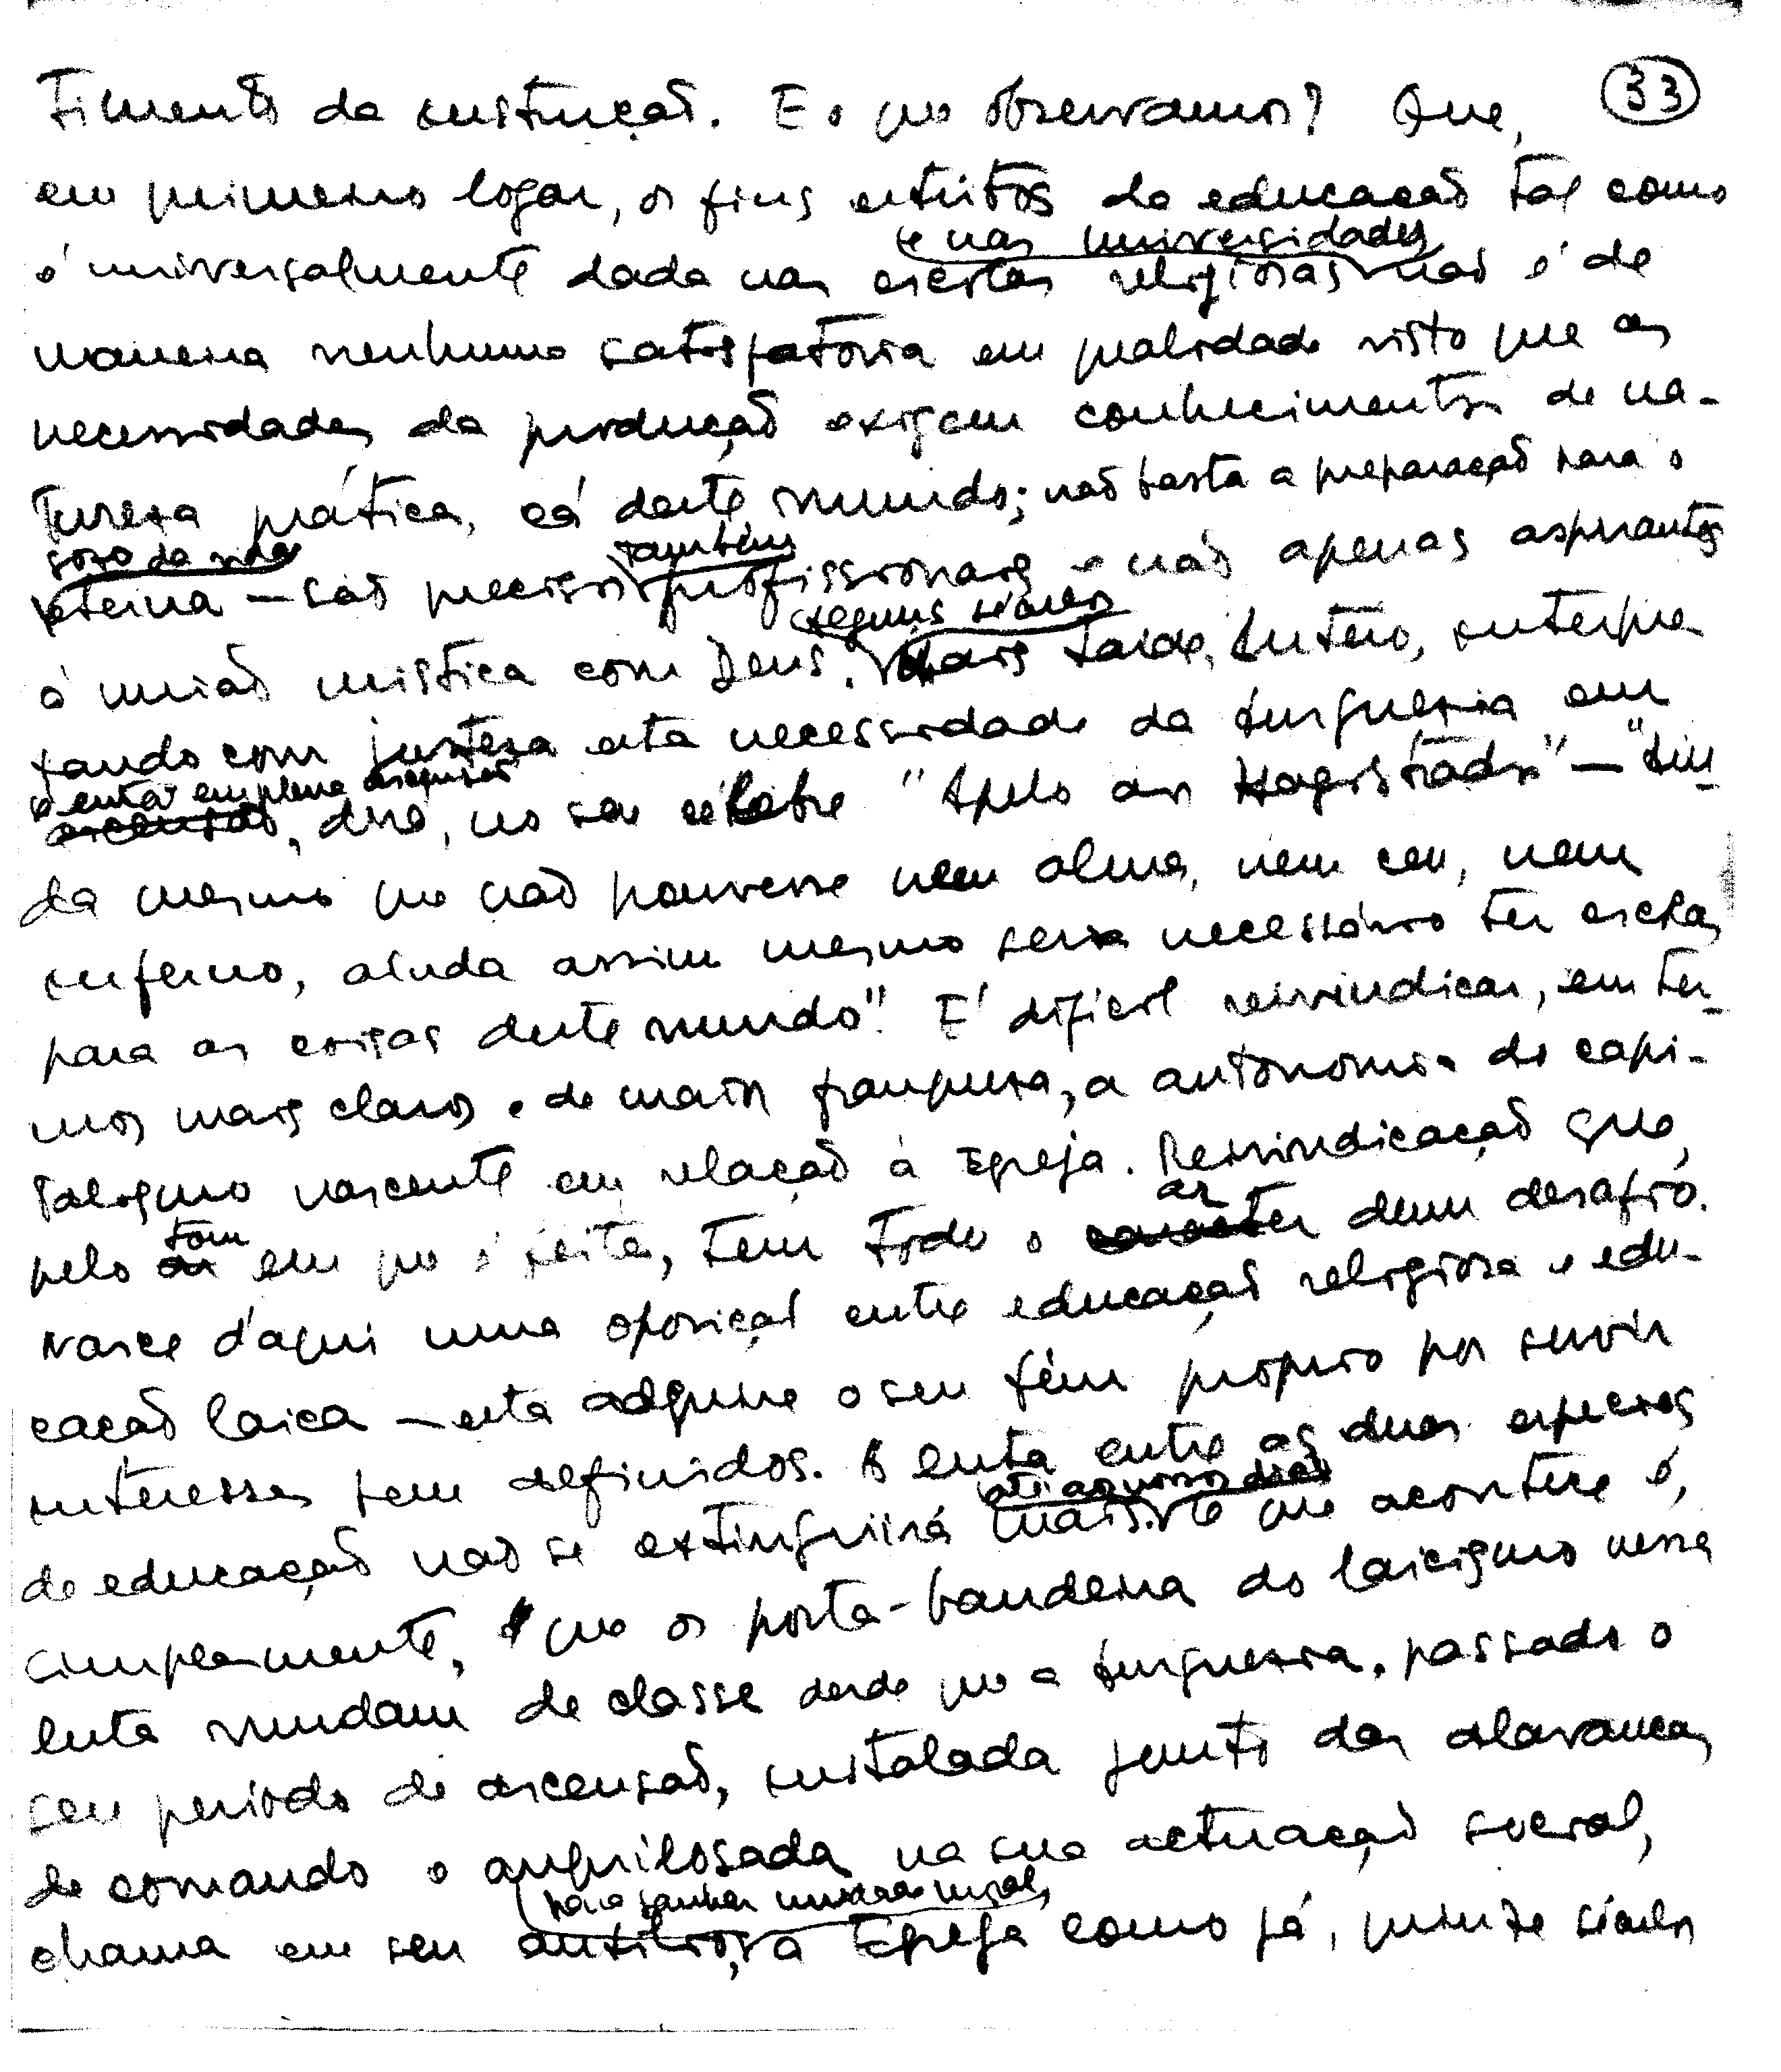 timento da instrução. E o que observamos? Que, 33
em primeiro logar, os fins estritos da educação tal como
e nas universidades
é universalmente dada nas escolas religiosas não é de
maneira nenhuma satisfatoria em qualidade visto que as
necessidades da produção exigem conhecimentos de na-
tureza prática, cá deste mundo; não basta a preparação para o
goso da vida também
eterna — são precisos profissionais e não apenas aspirantes
alguns séculos
á união mistica com Deus. Mais tarde, Lutero, interpre
tando com justeza esta necessidade da burguesia em
então em plena ascensão
ascensão, dirá, no seu célebre "Apelo aos Magistrados" — "Ain-
da mesmo que não houvesse nem alma, nem ceu, nem
inferno, ainda assim mesmo seria necessário ter escolas
para as coisas deste mundo". E' dificil reivindicar, em ter-
mos mais claros e de maior franqueza, a autonomia do capi-
talismo nascente em relação á Egreja. Reivindicação que,
tom ar
pelo ar em que é feita, tem todo o caracter dum desafio.
Nasce d'aqui uma oposição entre educação religiosa e edu-
cação laica — esta adquire o seu têm proprio por servir
interesses bem definidos. A luta entre as duas especies
até aos nossos dias
de educação não se extinguirá mais. O que acontece é,
simplesmente, que os porta-bandeira do laicismo nessa
luta mudam de classe desde que a burguesia, passado o
seu periodo de ascensão, instalada junto das alavancas
de comando e anquilosada na sua actuação social,
para ganhar unidade moral,
chama em seu auxilio, a Egreja como já, quinze séculos